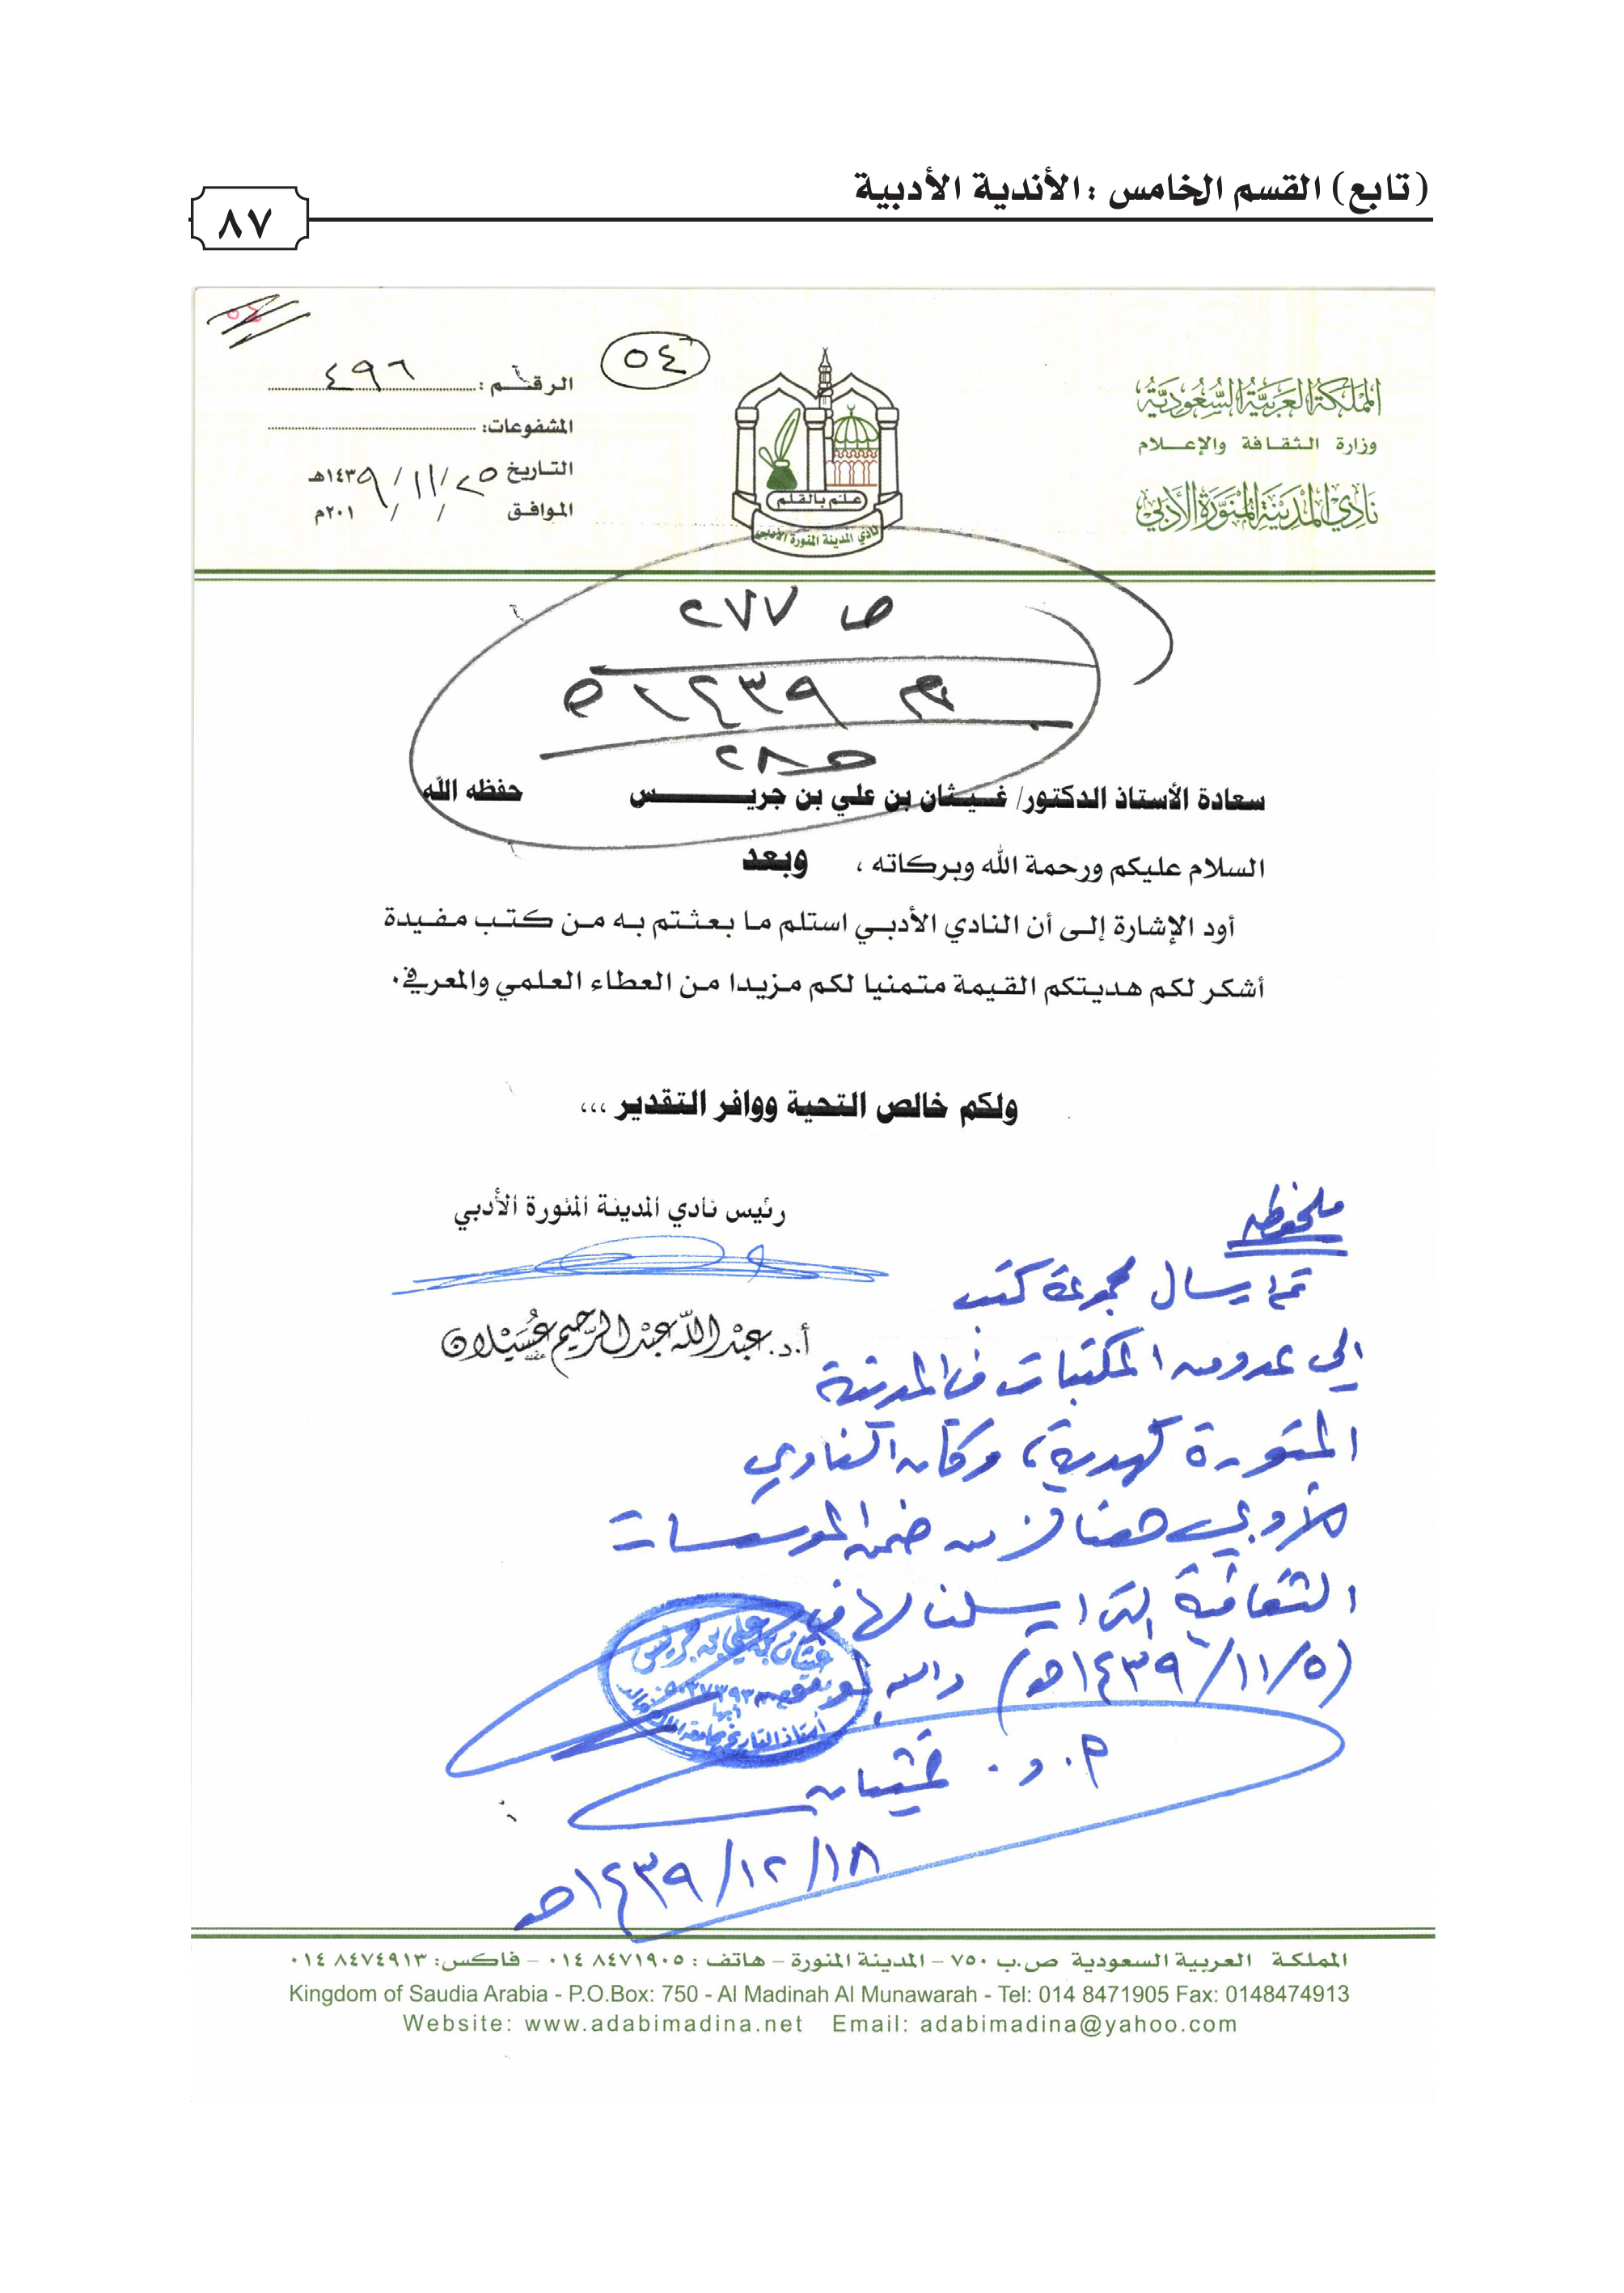 (تابع) القسم الخامس : الأندية الأدبية
٨٧
المملكة العربية السعودية
وزارة الثقافة والإعلام
نادي المدينة المنورة الأدبي
علم بالقلم
نادي المدينة المنورة الأدبي
٥٤
الرقم : ٤٩٦
المشفوعات:
التاريخ ٢٥ / ١١ / ١٤٣٩هـ
الموافق / / ٢٠١م
ص ٢٧٧
م ١٤٣٩ هـ
ص ٢٨
سعادة الأستاذ الدكتور/ غيثان بن علي بن جريس حفظه الله
السلام عليكم ورحمة الله وبركاته ، وبعد
أود الإشارة إلى أن النادي الأدبي استلم ما بعثتم به من كتب مفيدة
أشكر لكم هديتكم القيمة متمنيا لكم مزيدا من العطاء العلمي والمعرفي.
ولكم خالص التحية ووافر التقدير ،،،
رئيس نادي المدينة المنورة الأدبي
أ.د. عبدالله عبدالرحيم عسيلان
ملحوظة
تم إرسال مجموعة كتب
إلى عدد من المكتبات في المدينة
المنورة كهدية، وكان النادي
الأدبي هناك من ضمن المؤسسات
الثقافية التي أرسلنا لها في
(٥/١١/١٤٣٩هـ) والله
غيثان بن علي بن جريس
أستاذ التاريخ بجامعة الملك خالد
أبها
أ.د. غيثان
١٨/١٢/١٤٣٩هـ
المملكة العربية السعودية ص.ب ٧٥٠ – المدينة المنورة – هاتف : ٠١٤ ٨٤٧١٩٠٥ – فاكس: ٠١٤ ٨٤٧٤٩١٣
Kingdom of Saudia Arabia - P.O.Box: 750 - Al Madinah Al Munawarah - Tel: 014 8471905 Fax: 0148474913
Website: www.adabimadina.net Email: adabimadina@yahoo.com